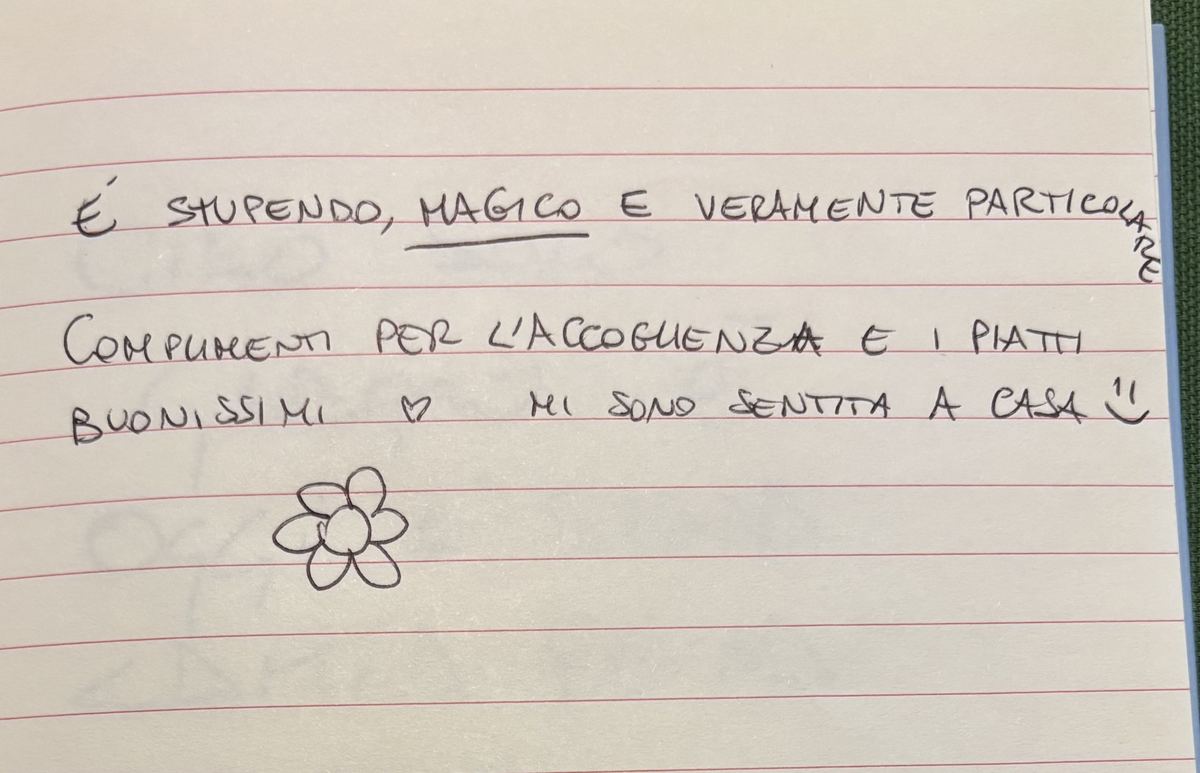 É STUPENDO, MAGICO E VERAMENTE PARTICOLARE
COMPLIMENTI PER L'ACCOGLIENZA E I PIATTI
BUONISSIMI ♡ MI SONO SENTITA A CASA